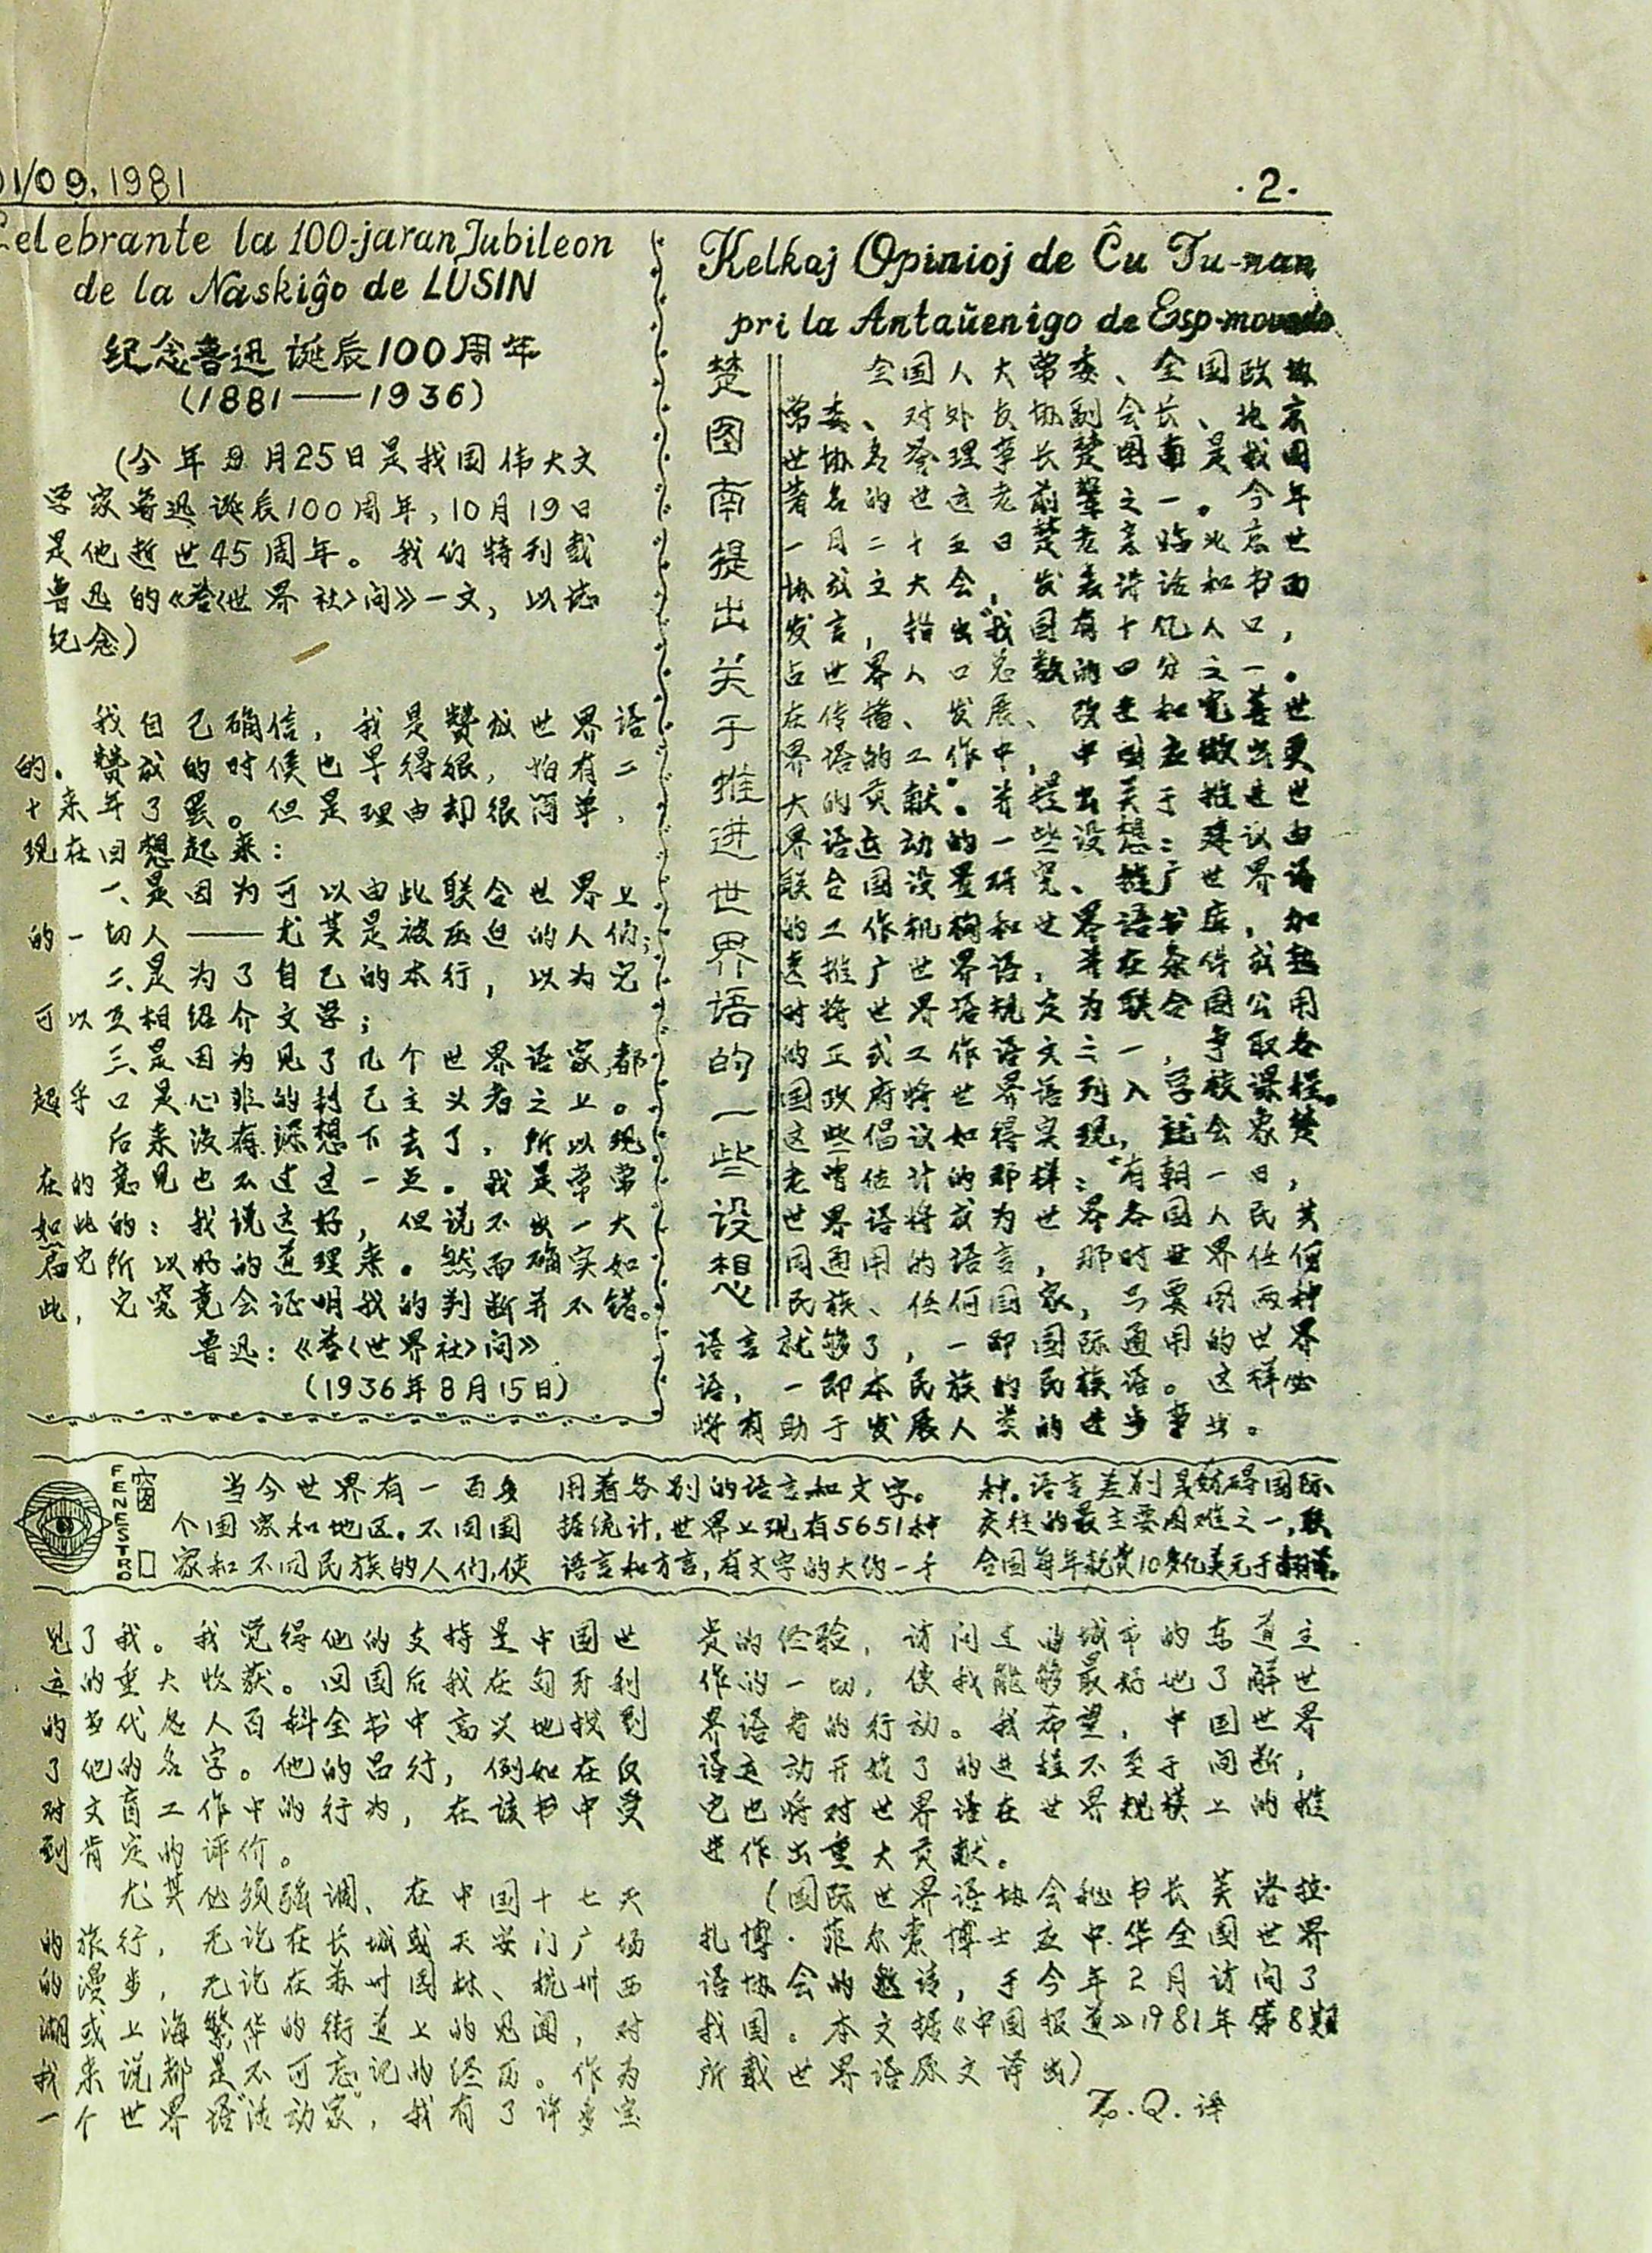 01/09.1981
·2·
Celebrante la 100-jaran Jubileon
de la Naskiĝo de LUSIN
纪念鲁迅诞辰100周年
(1881——1936)
(今年9月25日是我国伟大文
学家鲁迅诞辰100周年,10月19日
是他逝世45周年。我们特刊载
鲁迅的《答〈世界社〉问》一文,以志
纪念)
我自己确信,我是赞成世界语
的。赞成的时候也早得很,怕有二
十来年了罢。但是理由却很简单,
现在回想起来:
一、是因为可以由此联合世界上
的一切人——尤其是被压迫的人们;
二、是为了自己的本行,以为它
可以互相绍介文学;
三、是因为见了几个世界语家,都
超乎口是心非的利己主义者之上。
后来没有深想下去了,所以现
在的意见也不过这一点。我是常常
如此的:我说这好,但说不出一大
篇它所以好的道理来。然而确实如
此,它究竟会证明我的判断并不错。
鲁迅:《答〈世界社〉问》
(1936年8月15日)
Kelkaj Opinioj de Ĉu Tu-nan
pri la Antaŭenigo de Esp-movado
楚图南提出关于推进世界语的一些设想
全国人大常委、全国政协
常委、对外友协副会长、北京
世协名誉理事长楚图南是我国
著名的世运老前辈之一。今年
一月二十五日楚老亲临北京世
协成立大会,发表讲话和书面
发言,指出“我国有十亿人口,
占世界人口总数的四分之一。
在传播、发展、改进和完善世
界语的工作中,中国应做出更
大的贡献”。并提出关于推进世
界语运动的一些设想:建议由
联合国设置研究、推广世界语
的工作机构和世界语书库,加
速推广世界语,并在条件成熟
时将世界语规定为联合国公用
的正式工作语文之一,争取各
国政府将世界语列入学校课程。
这些倡议如得实现,就会象楚
老曾估计的那样:“有朝一日,
世界语将成为世界各国人民共
同通用的语言,那时世界任何
民族、任何国家,只要用两种
语言就够了,一即国际通用的世界
语,一即本民族的民族语。这样必
将有助于发展人类的进步事业。
FENESTRO
窗囗
当今世界有一百多
个国家和地区。不同国
家和不同民族的人们,使
用着各别的语言和文字。
据统计,世界上现有5651种
语言和方言,有文字的大约一千
种。语言差别是妨碍国际
交往的最主要困难之一,联
合国每年耗费10多亿美元于翻译。
见了我。我觉得他的支持是中国世
运的重大收获。回国后我在匈牙利
的当代名人百科全书中高兴地找到
了他的名字。他的品行,例如在反
对文盲工作中的行为,在该书中受
到肯定的评价。
尤其必须强调、在中国十七天
的旅行,无论在长城或天安门广场
的漫步,无论在苏州园林、杭州西
湖或上海繁华的街道上的见闻,对
我来说都是不可忘记的经历。作为
一个世界语“活动家”,我有了许多宝
贵的经验,访问过的城市的东道主
作的一切,使我能够最好地了解世
界语者的行动。我希望,中国世界
语运动开始了的进程不至于间断,
它也将对世界语在世界规模上的推
进作出重大贡献。
(国际世界语协会秘书长芙洛拉·
扎博·菲尔索博士应中华全国世界
语协会的邀请,于今年2月访问了
我国。本文据《中国报道》1981年第8期
所载世界语原文译出)
Z.Q.译